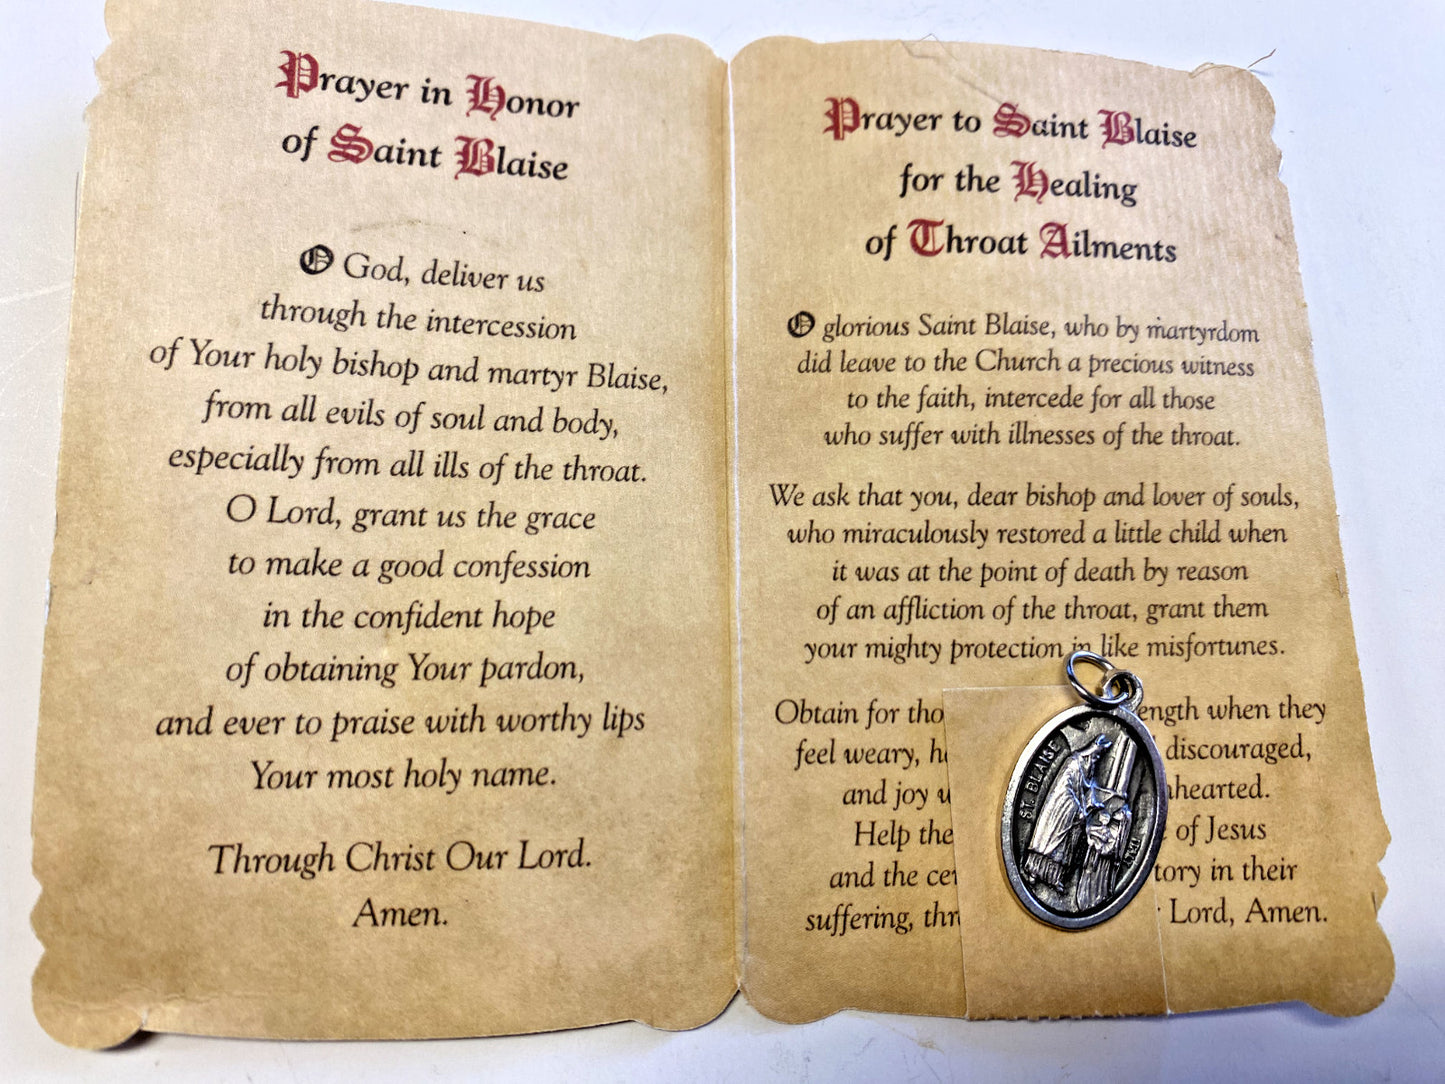 Prayer in Honor
of Saint Blaise
O God, deliver us
through the intercession
of Your holy bishop and martyr Blaise,
from all evils of soul and body,
especially from all ills of the throat.
O Lord, grant us the grace
to make a good confession
in the confident hope
of obtaining Your pardon,
and ever to praise with worthy lips
Your most holy name.
Through Christ Our Lord.
Amen.
Prayer to Saint Blaise
for the Healing
of Throat Ailments
O glorious Saint Blaise, who by martyrdom
did leave to the Church a precious witness
to the faith, intercede for all those
who suffer with illnesses of the throat.
We ask that you, dear bishop and lover of souls,
who miraculously restored a little child when
it was at the point of death by reason
of an affliction of the throat, grant them
your mighty protection in like misfortunes.
Obtain for when they
feel weary, discouraged,
and joy
Help of Jesus
and the in their
suffering, Lord, Amen.
ST. BLAISE